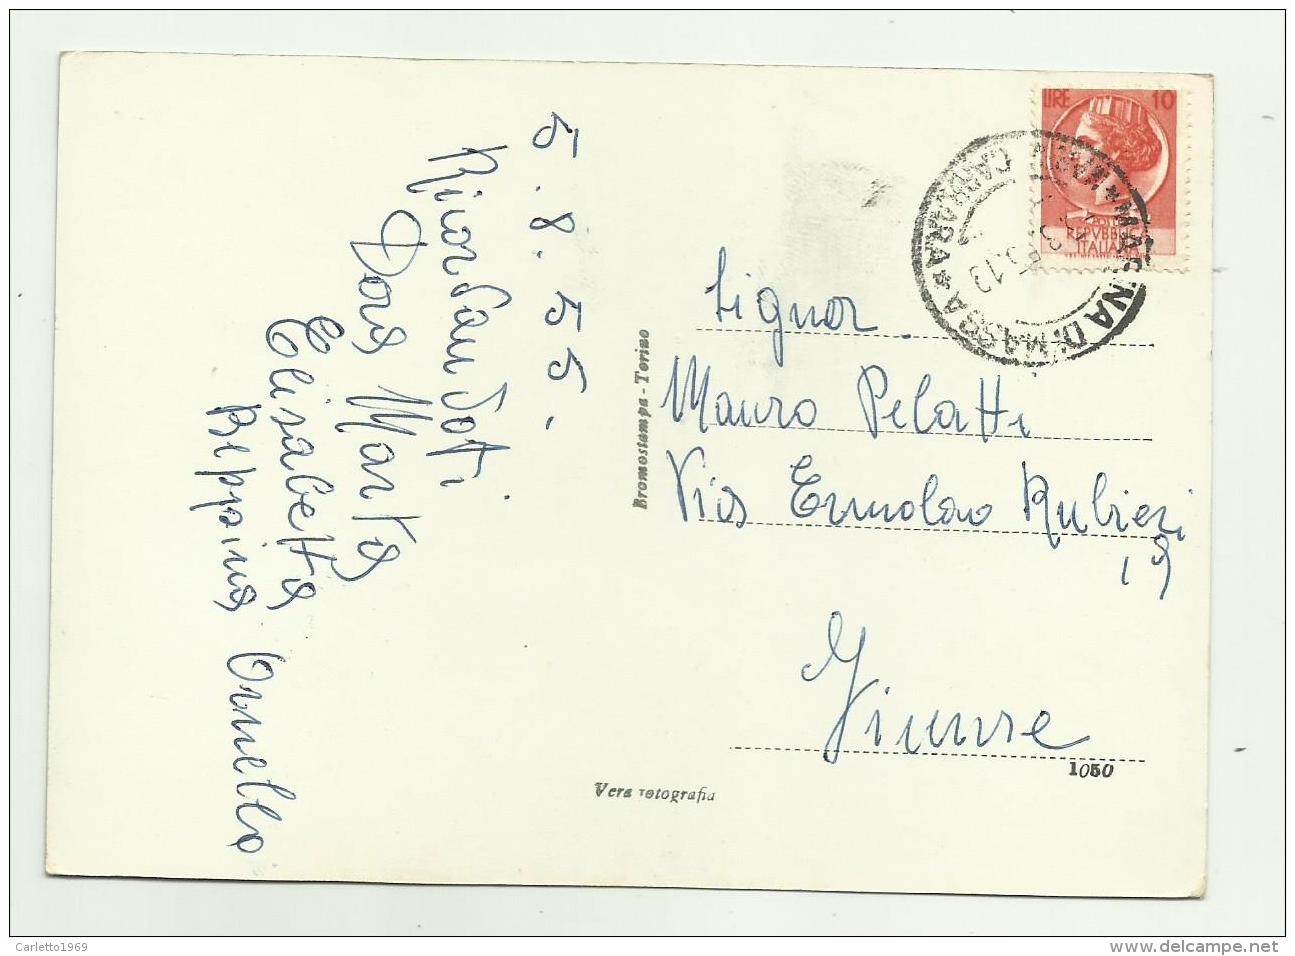 5.8.55.
Ricordandoti
Dora Marta
Elisabetta
Beppina Ornella
Bromostampa - Torino
LIRE 10
REPVBBLICA
ITALIANA
MARINA DI MASSA * CARRARA *
Signor
Mauro Pelatti
Via Ermolao Rubieri
19
Firenze
1050
Vera fotografia
Carletto1969
www.delcampe.net